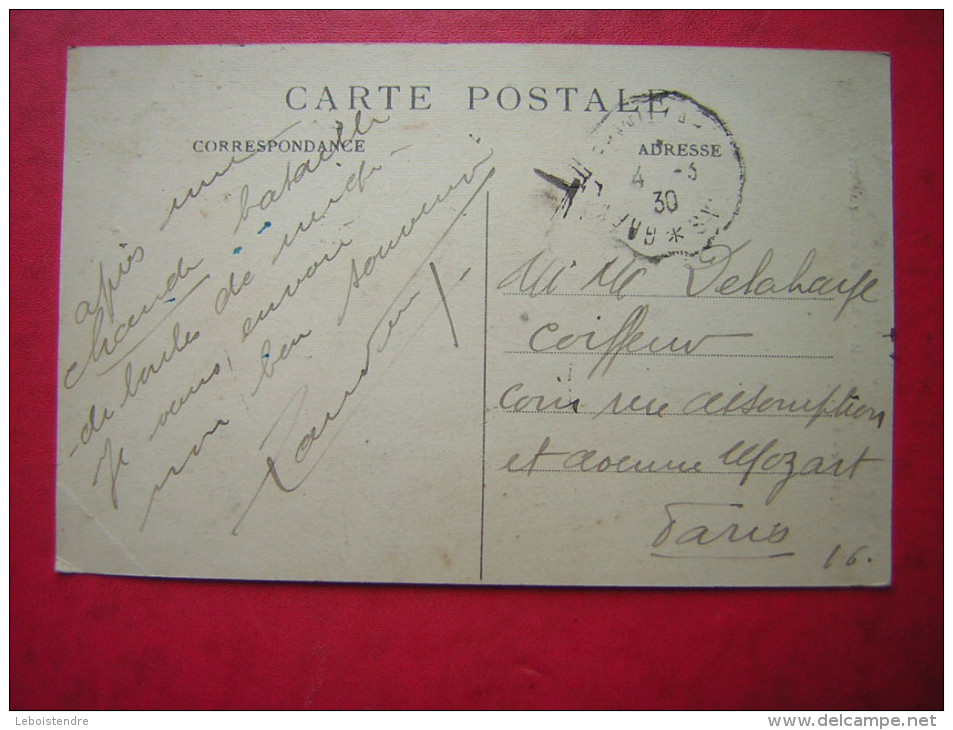 CARTE POSTALE
CORRESPONDANCE
ADRESSE
4 -3
30
après une
chaude bataille
de boules de neige
Je vous envoie
mon bon souvenir
M Me Delahaye
Coiffeur
Coin rue assomption
et avenue Mozart
Paris
16.
Leboistendre
www.delcampe.net